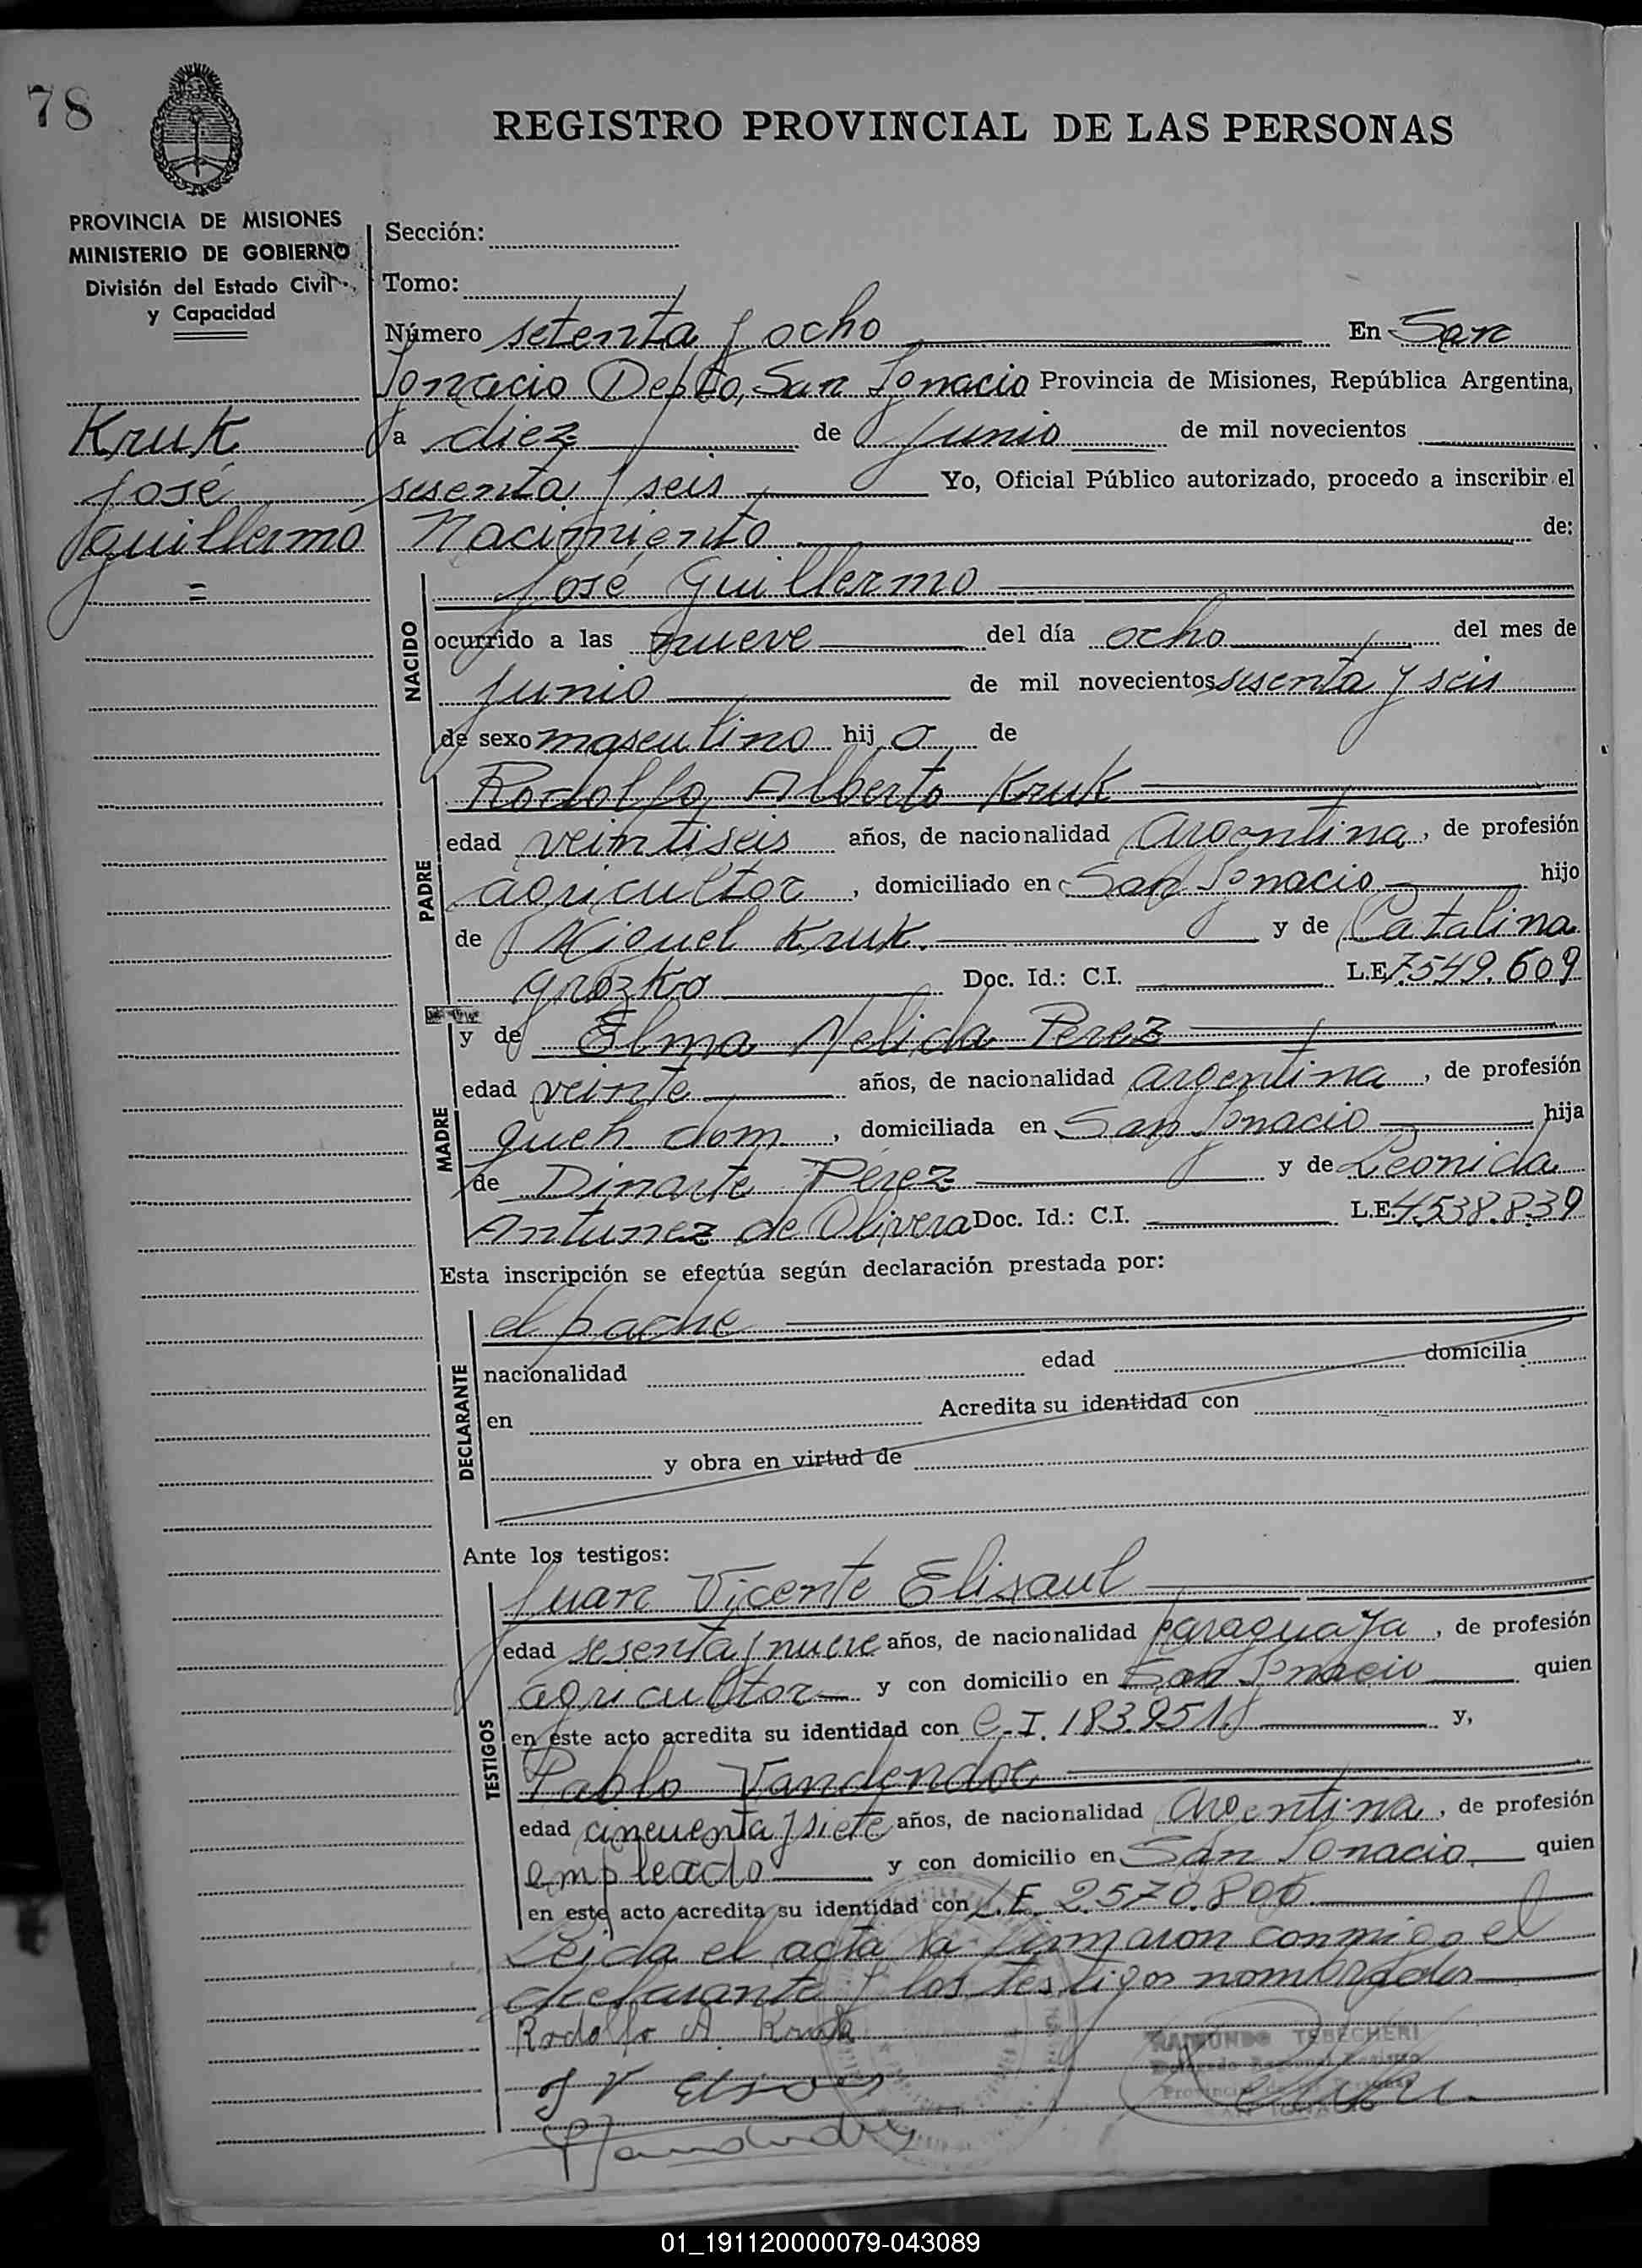 78
REGISTRO PROVINCIAL DE LAS PERSONAS
PROVINCIA DE MISIONES
MINISTERIO DE GOBIERNO
División del Estado Civil
y Capacidad
Kruk
José
Guillermo
=
Sección:
Tomo:
Número setenta y ocho En San
Ignacio Depto, San Ignacio Provincia de Misiones, República Argentina,
a diez de Junio de mil novecientos
sesenta y seis Yo, Oficial Público autorizado, procedo a inscribir el
Nacimiento de:
NACIDO
José Guillermo
ocurrido a las nueve del día ocho del mes de
Junio de mil novecientos sesenta y seis
de sexo masculino hijo de
PADRE
Rodolfo Alberto Kruk
edad veintiseis años, de nacionalidad Argentina, de profesión
agricultor, domiciliado en San Ignacio hijo
de Miguel Kruk. y de Catalina
Grozko Doc. Id.: C.I. L.E 7.549.609
MADRE
y de Elma Nelida Perez
edad veinte años, de nacionalidad argentina, de profesión
queh dom, domiciliada en San Ignacio hija
de Dinarte Pérez y de Leonida
Antunez de Olivera Doc. Id.: C.I. L.E. 4.538.839
Esta inscripción se efectúa según declaración prestada por:
DECLARANTE
el padre
nacionalidad edad domicilia
en Acredita su identidad con
y obra en virtud de
Ante los testigos:
TESTIGOS
Juan Vicente Elisaul
edad sesenta y nueve años, de nacionalidad paraguaya, de profesión
agricultor y con domicilio en San Ignacio quien
en este acto acredita su identidad con C.I. y,
Pablo Vandendoc
edad cincuenta y siete años, de nacionalidad Argentina, de profesión
empleado y con domicilio en San Ignacio. quien
en este acto acredita su identidad con L.E. 2.570.806
Leida el acta la firmaron conmigo el
declarante y los testigos nombrados
Rodolfo A. Kruk
RAIMUNDO TEBECHERI
Delegado Regional Registro
Provincial de las Personas
SAN IGNACIO
J V
01_191120000079-043089